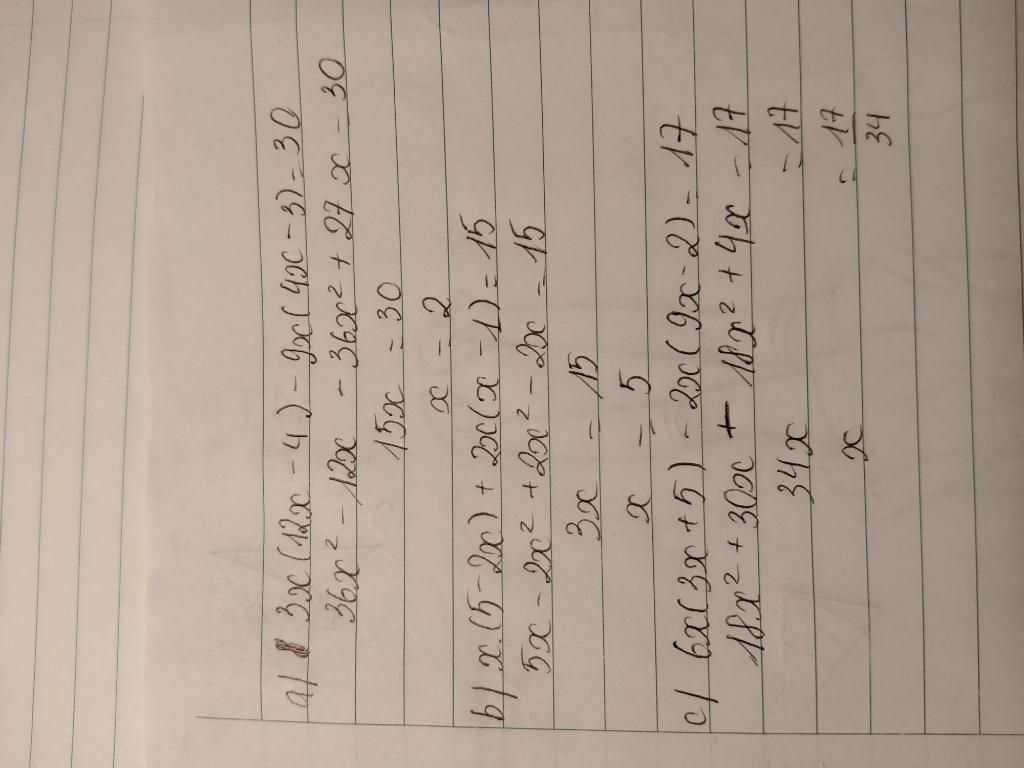 a) 3x(12x - 4) - 9x(4x - 3) = 30
36x² - 12x - 36x² + 27x = 30
15x = 30
x = 2
b) x.(5 - 2x) + 2x(x - 1) = 15
5x - 2x² + 2x² - 2x = 15
3x = 15
x = 5
c) 6x(3x + 5) - 2x(9x - 2) = 17
18x² + 30x - 18x² + 4x = 17
34x = 17
x = 17/34